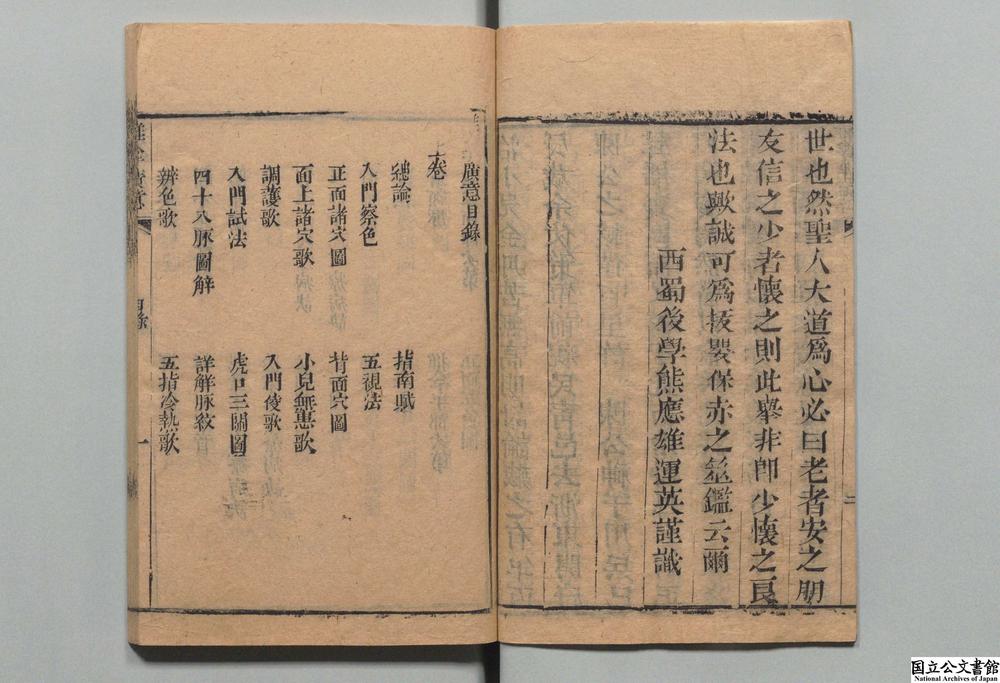 世也然聖人大道爲心必曰老者安之朋
友信之少者懷之則此擧非卽少懷之良
法也歟誠可爲拔嬰保赤之鑑云爾
西蜀後學熊應雄運英謹識
二
廣意目錄
上卷
總論 指南賦
入門察色 五視法
正面諸穴圖 背面穴圖
面上諸穴歌 小兒無患歌
調護歌 入門候歌
入門試法 虎口三關圖
四十八脉圖解 詳解脉紋
辨色歌 五指冷熱歌
推拿廣意 目錄 一
国立公文書館
National Archives of Japan